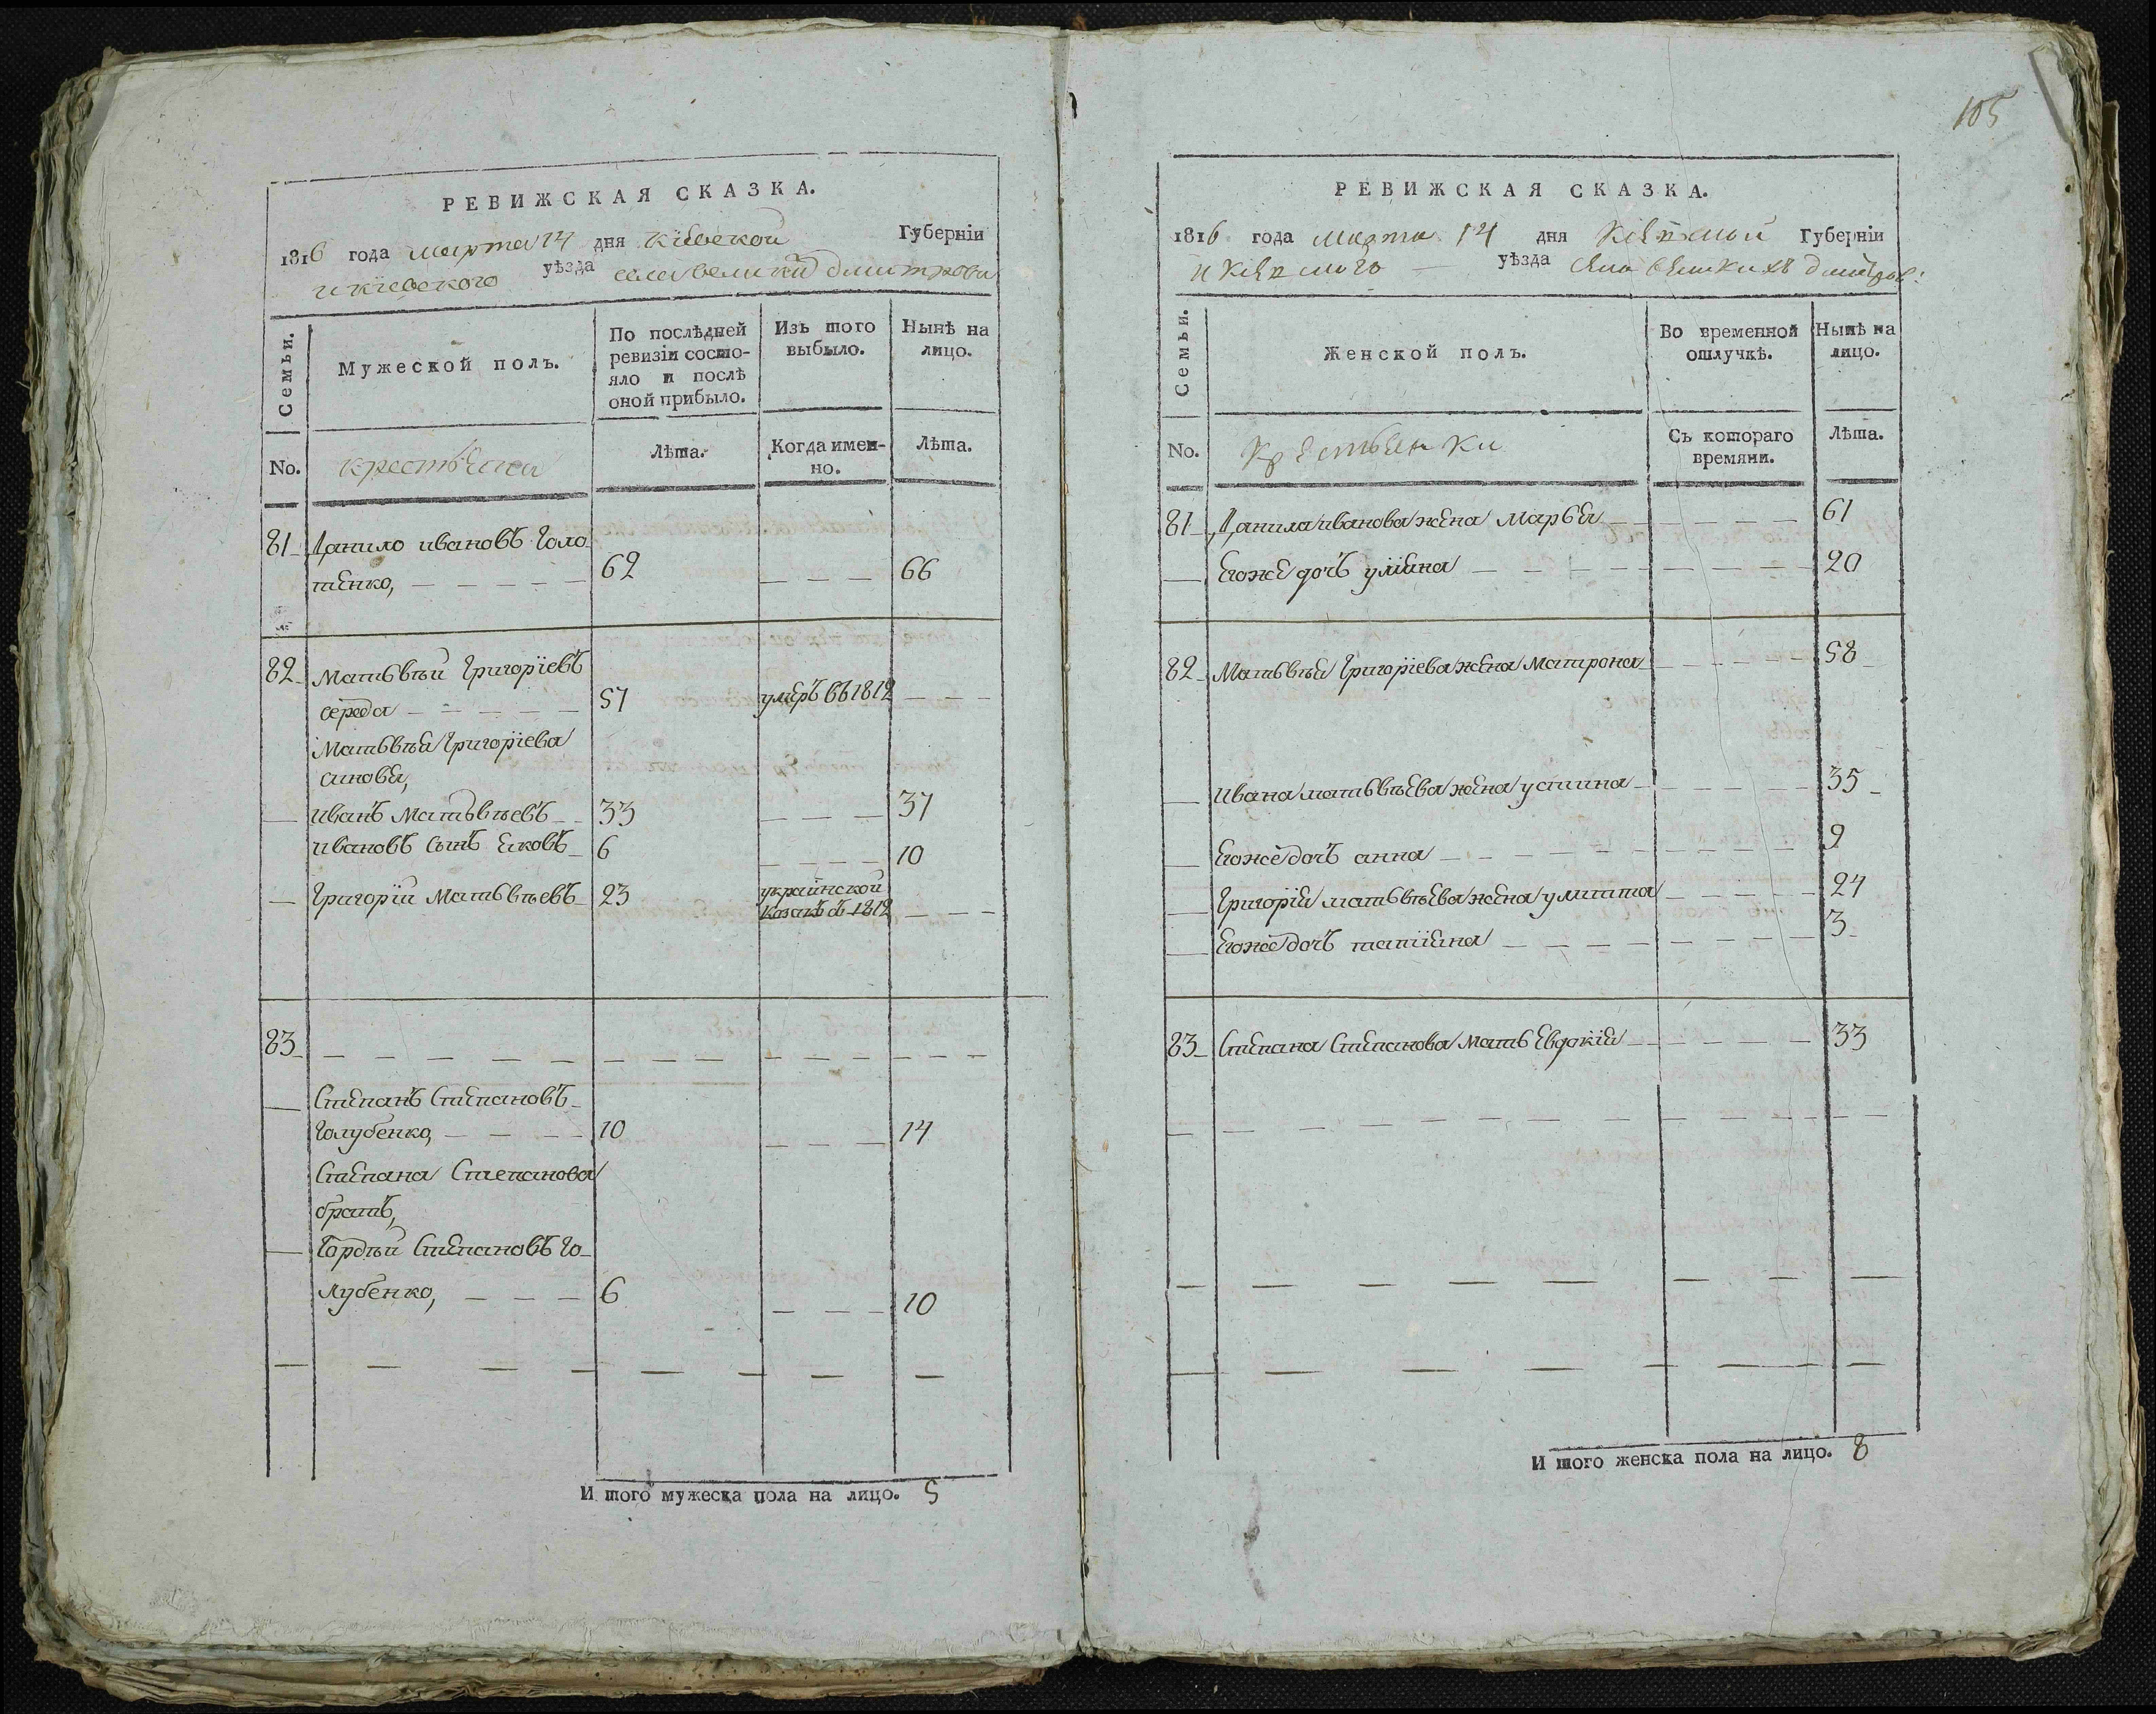 РЕВИЖСКАЯ СКАЗКА.
1816 года марта 14 дня Кіевской Губерніи
и кіевского уѣзда села великих дмитрови
Семьи.
Мужеской полъ.
По послѣдней ревизіи состо-
яло и послѣ
оной прибыло.
Изъ того
выбыло.
Нынѣ на
лицо.
No.
крестьяни
Лѣта.
Когда имен-
но.
Лѣта.
81 Данило ивановъ Голо
тенко, 62 66
82 Матьвѣй Григоріевъ
середа 57 умеръ въ 1812
Матьвѣя Григоріева
синовя,
иванъ Матьвѣевъ 33 37
ивановъ сынъ яковъ 6 10
Григорій Матьвѣевъ 23 украинской
козакъ въ 1812
83
Степанъ Степановъ
Голубенко, 10 14
Степана Степанова
братъ,
Гордѣй Степановъ Го-
лубенко, 6 10
И того мужеска пола на лицо. 5
105
РЕВИЖСКАЯ СКАЗКА.
1816 года марта 14 дня Кіевской Губерніи
и Кіевского уѣзда села великихъ дмитров:
Семьи.
Женской полъ.
Во временной
отлучкѣ.
Нынѣ на
лицо.
No.
Крестьянки
Съ котораго
времяни.
Лѣта.
81 Данила иванова жена Марья 61
егоже дочъ уліяна 20
82 Матьвѣя Григоріева жена Матрона 58
ивана матьвѣева жена устина 35
егоже дочъ анна 9
Григорія матьвѣева жена улитта 24
егоже дочъ татіяна 3
83 Степана Степанова мать Евдокія 33
И того женска пола на лицо. 8